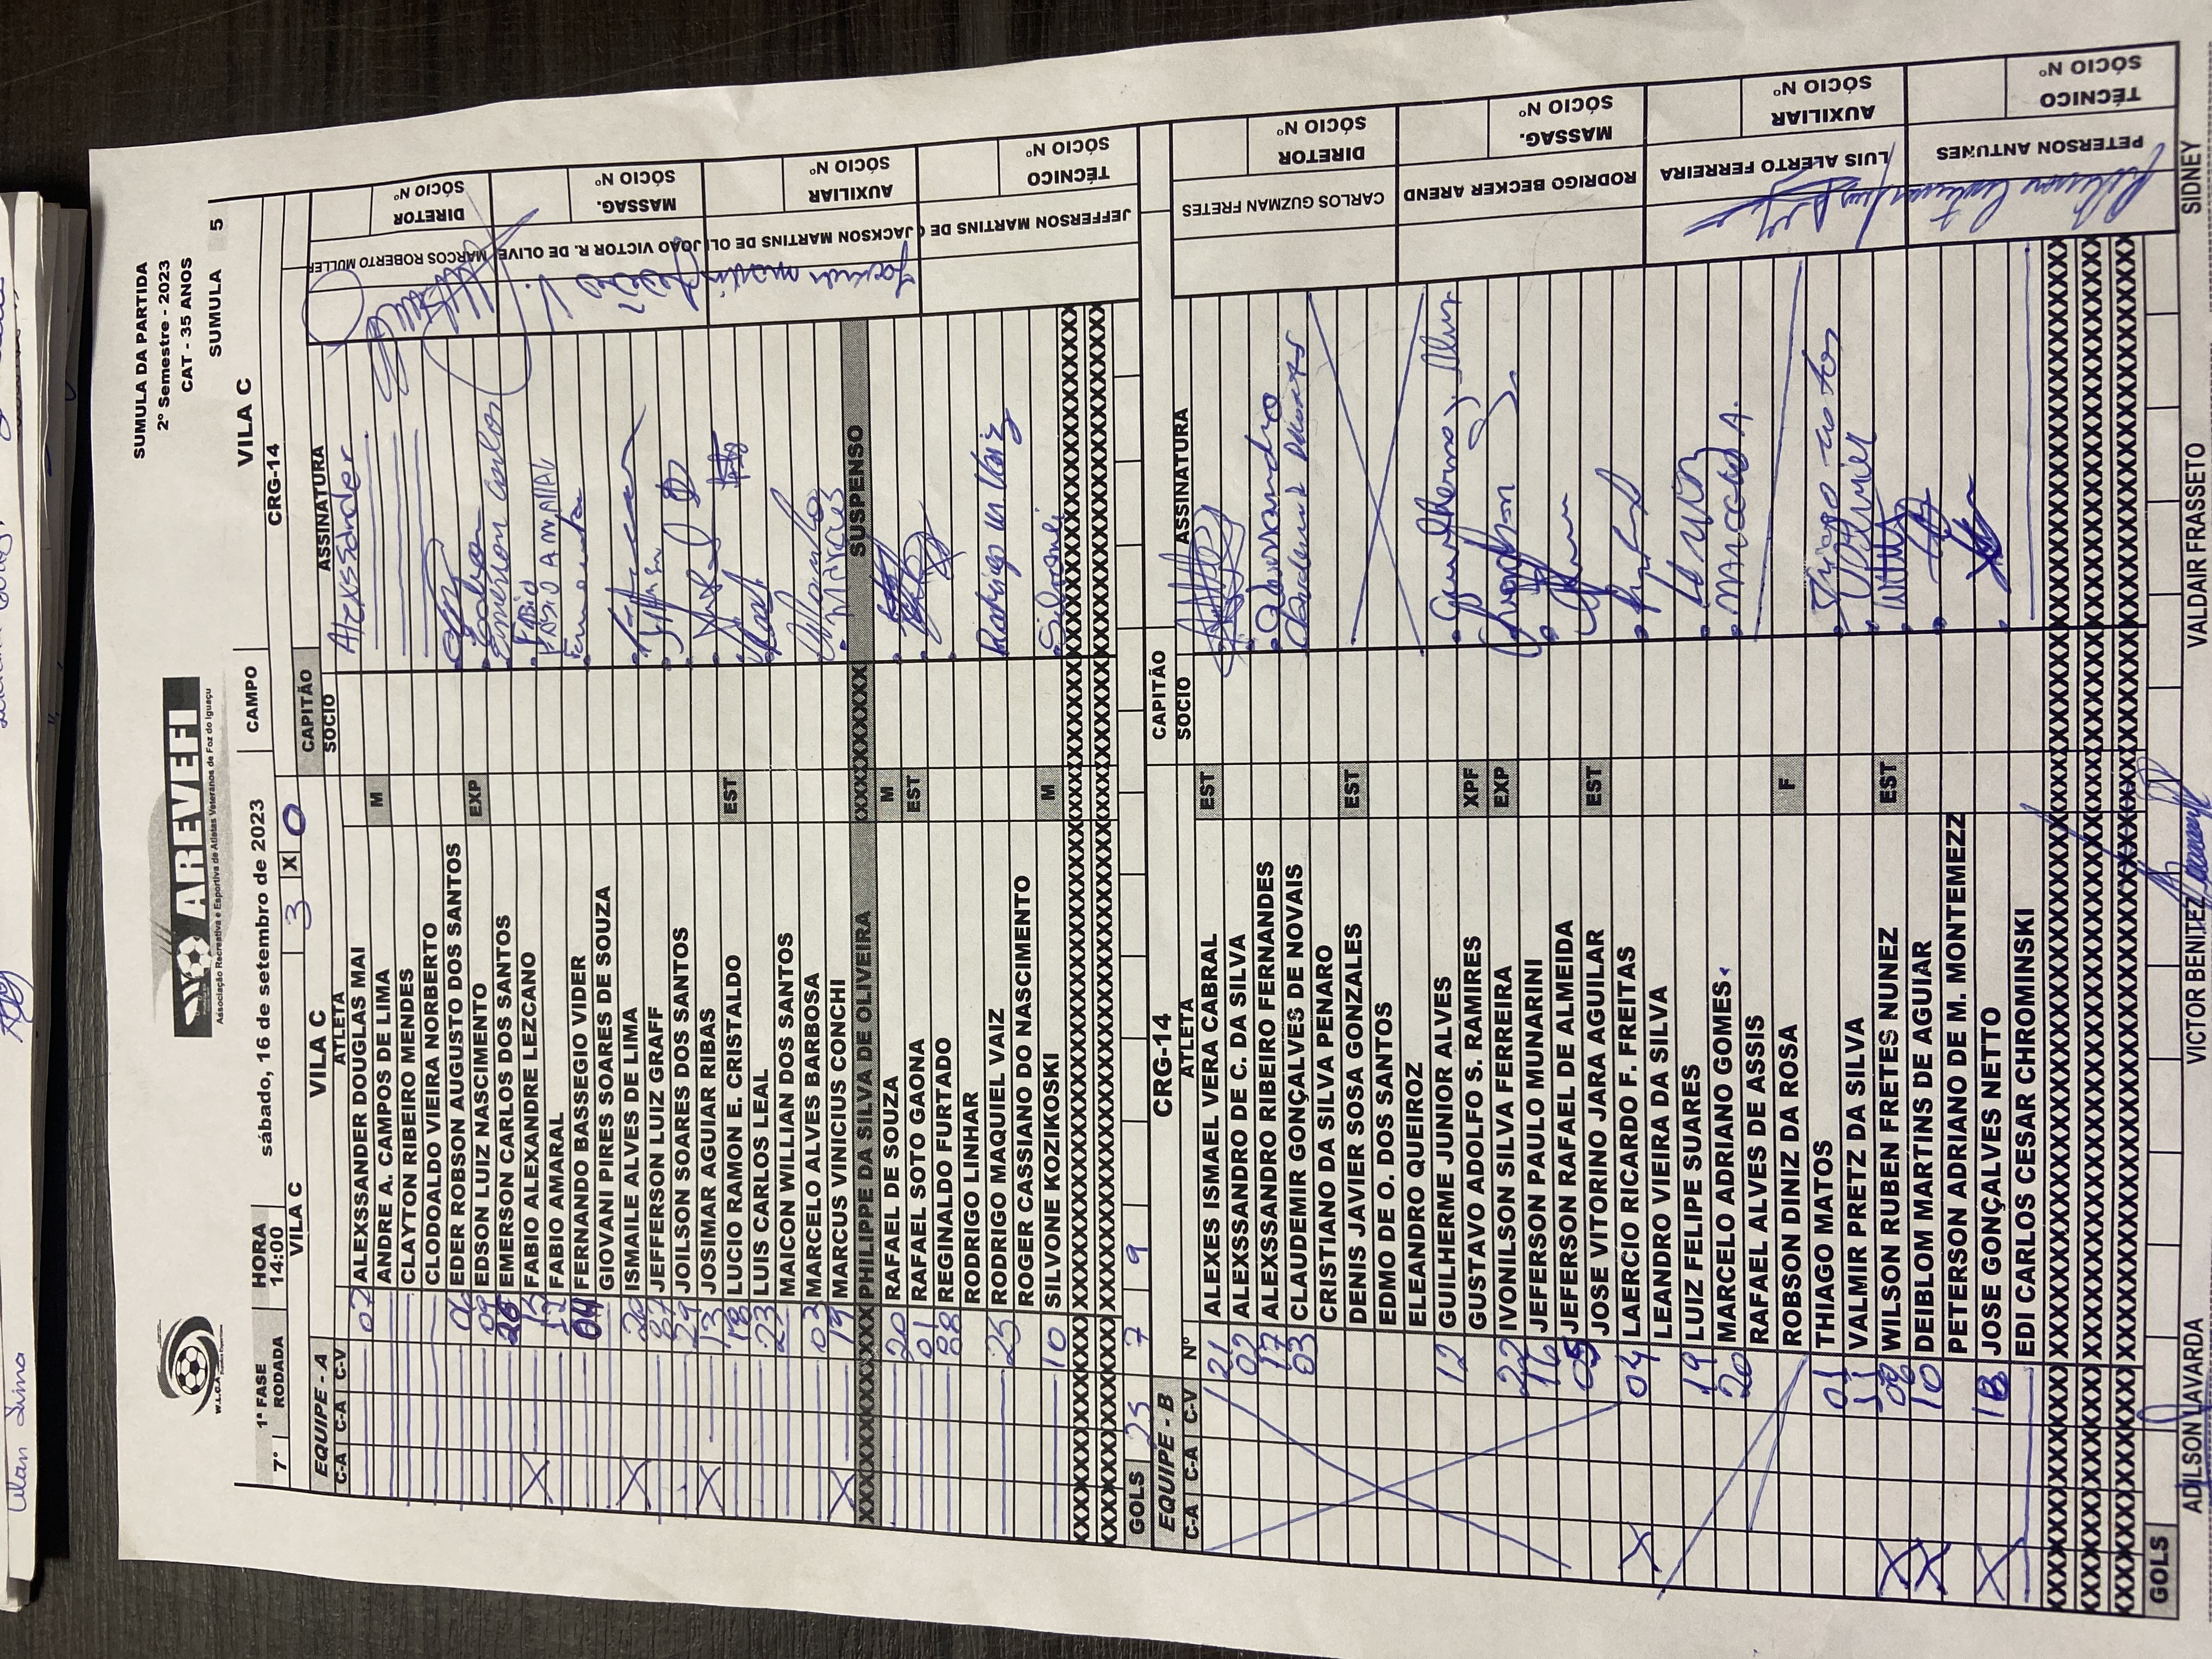 SUMULA DA PARTIDA
2º Semestre - 2023
CAT - 35 ANOS
SUMULA 5
W.L.C.A
AREVEFI
Associação Recreativa e Esportiva de Atletas Veteranos de Foz do Iguaçu
1ª FASE HORA sábado, 16 de setembro de 2023 CAMPO VILA C
7º RODADA 14:00
VILA C 3 X 0 CRG-14
EQUIPE - A VILA C CAPITÃO
C-A C-A C-V ATLETA SOCIO ASSINATURA
07 ALEXSSANDER DOUGLAS MAI Alexssander
ANDRE A. CAMPOS DE LIMA M
CLAYTON RIBEIRO MENDES
CLODOALDO VIEIRA NORBERTO
06 EDER ROBSON AUGUSTO DOS SANTOS
09 EDSON LUIZ NASCIMENTO EXP Edson
26 EMERSON CARLOS DOS SANTOS Emerson Carlos
15 FABIO ALEXANDRE LEZCANO Fabio
FABIO AMARAL FABIO AMARAL
04 FERNANDO BASSEGIO VIDER
GIOVANI PIRES SOARES DE SOUZA
ISMAILE ALVES DE LIMA
07 JEFFERSON LUIZ GRAFF
29 JOILSON SOARES DOS SANTOS
13 JOSIMAR AGUIAR RIBAS
18 LUCIO RAMON E. CRISTALDO EST
23 LUIS CARLOS LEAL
MAICON WILLIAN DOS SANTOS
03 MARCELO ALVES BARBOSA
X 19 MARCUS VINICIUS CONCHI Marcus
PHILIPPE DA SILVA DE OLIVEIRA SUSPENSO
20 RAFAEL DE SOUZA M
01 RAFAEL SOTO GAONA EST
88 REGINALDO FURTADO
RODRIGO LINHAR
25 RODRIGO MAQUIEL VAIZ Rodrigo M Vaiz
ROGER CASSIANO DO NASCIMENTO
10 SILVONE KOZIKOSKI M Silvone
GOLS 25 7 9
MARCOS ROBERTO MULLER
DIRETOR
SÓCIO Nº
JOAO VICTOR R. DE OLIVE
MASSAG.
SÓCIO Nº
JACKSON MARTINS DE OLI
AUXILIAR
SÓCIO Nº
JEFFERSON MARTINS DE
TÉCNICO
SÓCIO Nº
EQUIPE - B CRG-14 CAPITÃO
C-A C-A C-V Nº ATLETA SOCIO ASSINATURA
21 ALEXES ISMAEL VERA CABRAL EST
02 ALEXSSANDRO DE C. DA SILVA
17 ALEXSSANDRO RIBEIRO FERNANDES Alexssandro
03 CLAUDEMIR GONÇALVES DE NOVAIS
CRISTIANO DA SILVA PENARO
DENIS JAVIER SOSA GONZALES EST
EDMO DE O. DOS SANTOS
ELEANDRO QUEIROZ
12 GUILHERME JUNIOR ALVES Guilherme J. Alves
GUSTAVO ADOLFO S. RAMIRES XPF
22 IVONILSON SILVA FERREIRA EXP
16 JEFERSON PAULO MUNARINI
05 JEFERSON RAFAEL DE ALMEIDA
JOSE VITORINO JARA AGUILAR EST
X 04 LAERCIO RICARDO F. FREITAS
LEANDRO VIEIRA DA SILVA
19 LUIZ FELIPE SUARES
20 MARCELO ADRIANO GOMES. Marcelo A.
RAFAEL ALVES DE ASSIS
ROBSON DINIZ DA ROSA F
01 THIAGO MATOS Thiago Matos
11 VALMIR PRETZ DA SILVA Valmir
X 08 WILSON RUBEN FRETES NUNEZ EST
X 10 DEIBLOM MARTINS DE AGUIAR
PETERSON ADRIANO DE M. MONTEMEZZ
X 18 JOSE GONÇALVES NETTO
EDI CARLOS CESAR CHROMINSKI
GOLS
CARLOS GUZMAN FRETES
DIRETOR
SÓCIO Nº
RODRIGO BECKER AREND
MASSAG.
SÓCIO Nº
LUIS ALERTO FERREIRA
AUXILIAR
SÓCIO Nº
PETERSON ANTUNES
TÉCNICO
SÓCIO Nº
ADILSON LAVARDA VICTOR BENITEZ VALDAIR FRASSETO SIDNEY